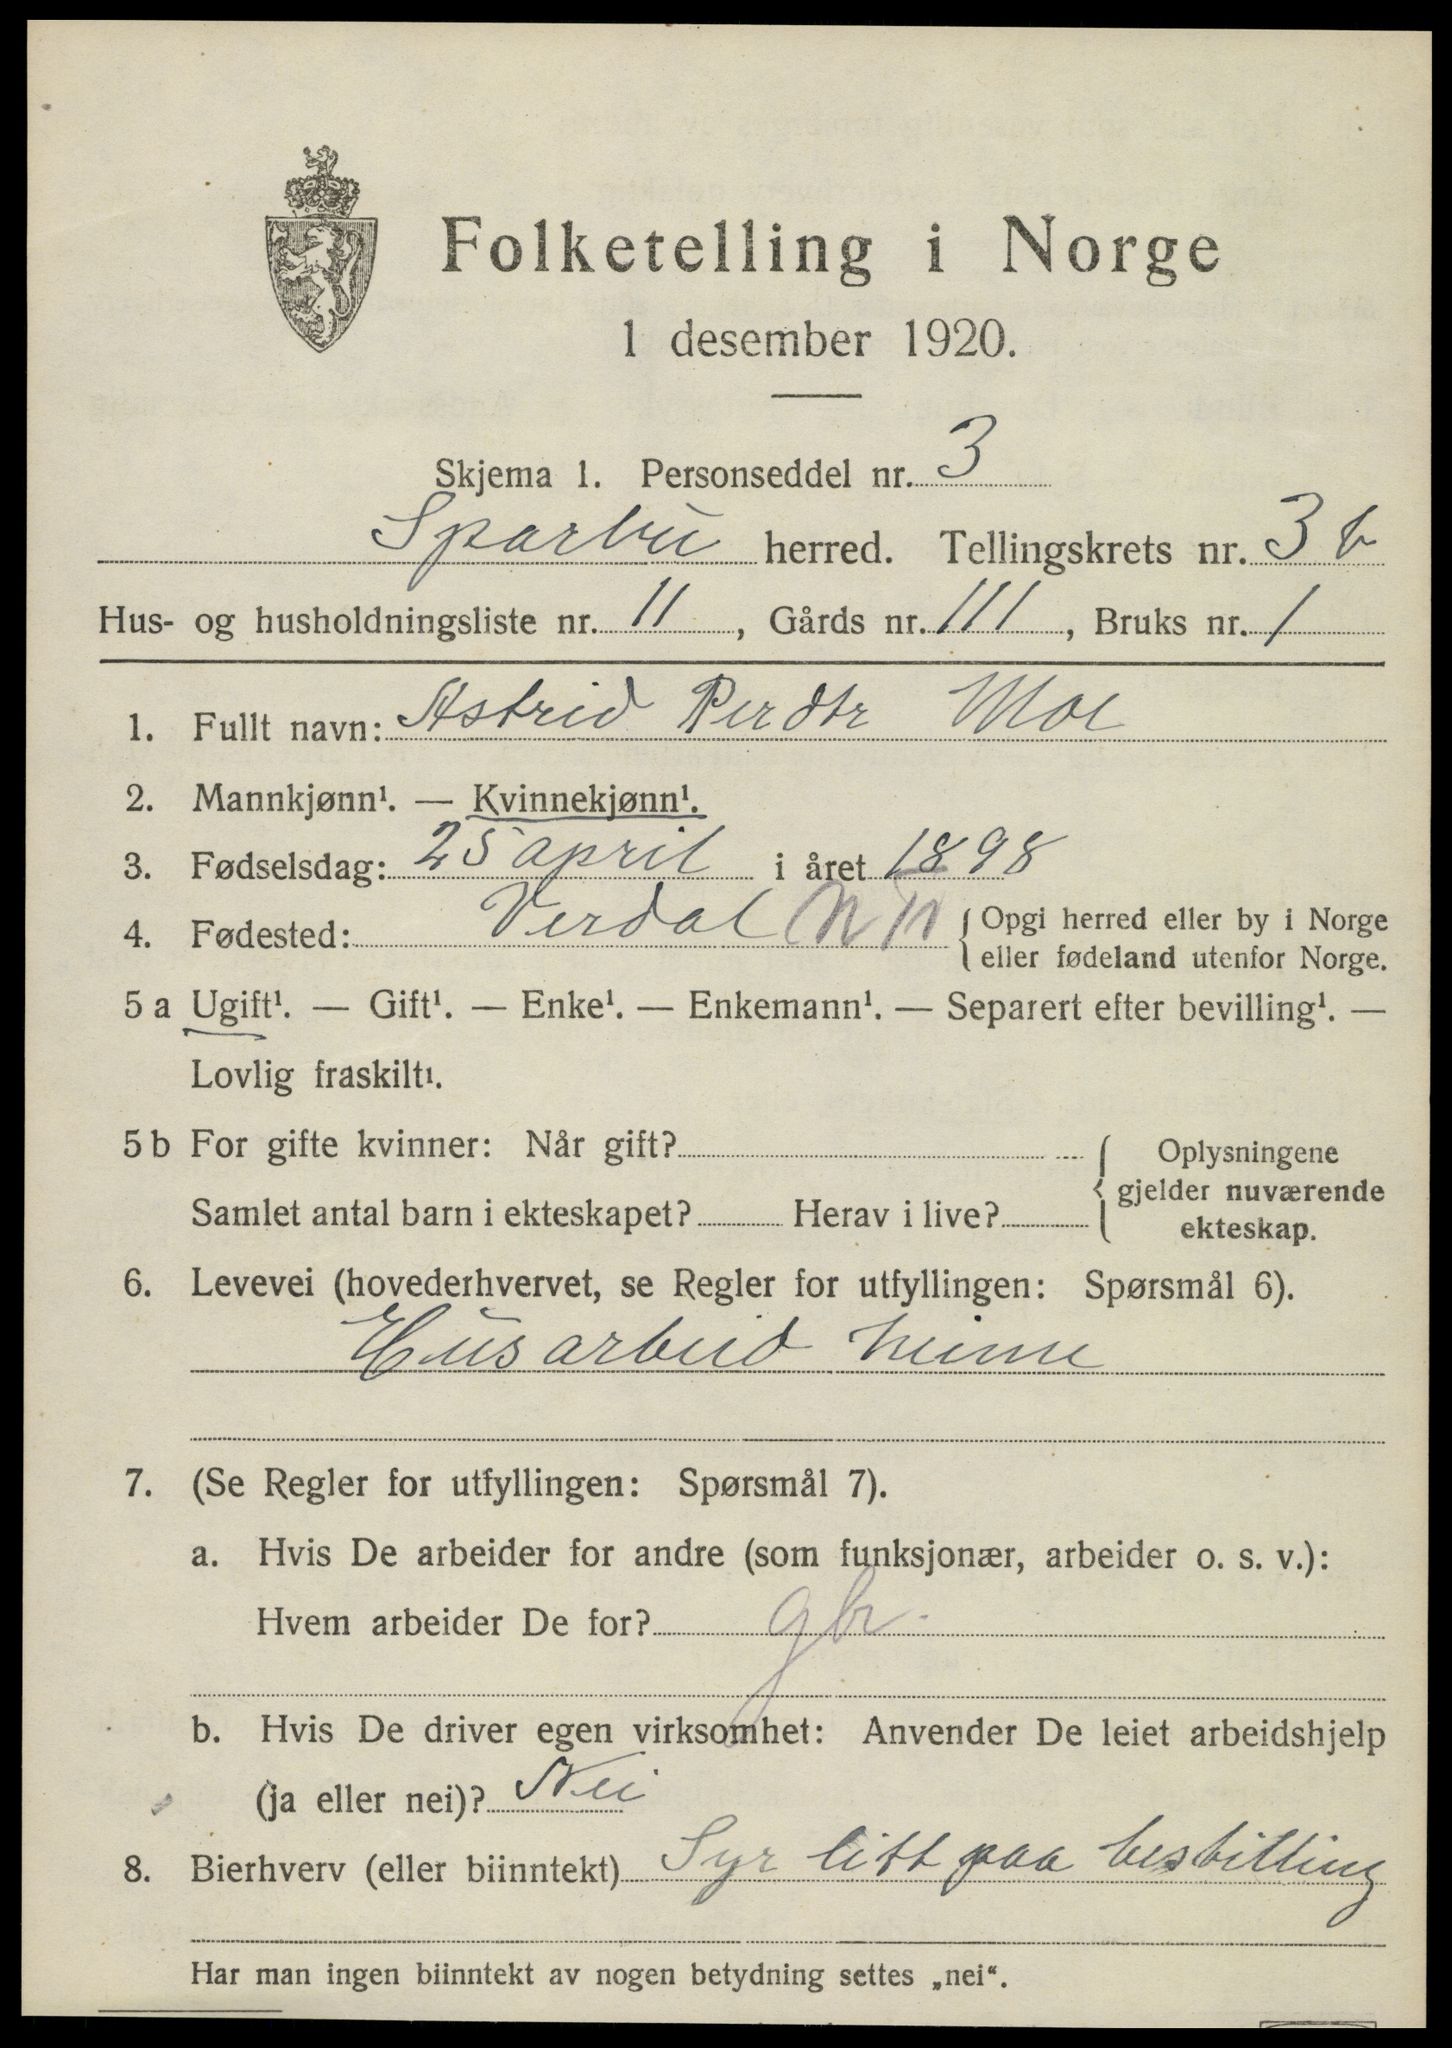 Folketelling i Norge
1 desember 1920.
Skjema 1. Personseddel nr. 3
Sparbu herred. Tellingskrets nr. 3 b
Hus- og husholdningsliste nr. 11, Gårds nr. 111, Bruks nr. 1
1. Fullt navn: Astrid Perdtr Moe
2. Mannkjønn¹. — Kvinnekjønn¹.
3. Fødselsdag: 25 april i året 1898
4. Fødested: Verdal N Tr { Opgi herred eller by i Norge
eller fødeland utenfor Norge.
5 a Ugift¹. — Gift¹. — Enke¹. — Enkemann¹. — Separert efter bevilling¹. —
Lovlig fraskilt¹.
5 b For gifte kvinner: Når gift?
Samlet antal barn i ekteskapet? Herav i live?
Oplysningene
gjelder nuværende
ekteskap.
6. Levevei (hovederhvervet, se Regler for utfyllingen: Spørsmål 6).
Husarbeid heime
7. (Se Regler for utfyllingen: Spørsmål 7).
a. Hvis De arbeider for andre (som funksjonær, arbeider o. s. v.):
Hvem arbeider De for? gbr.
b. Hvis De driver egen virksomhet: Anvender De leiet arbeidshjelp
(ja eller nei)? Nei
8. Bierhverv (eller biinntekt) Syr litt paa bestilling
Har man ingen biinntekt av nogen betydning settes „nei“.